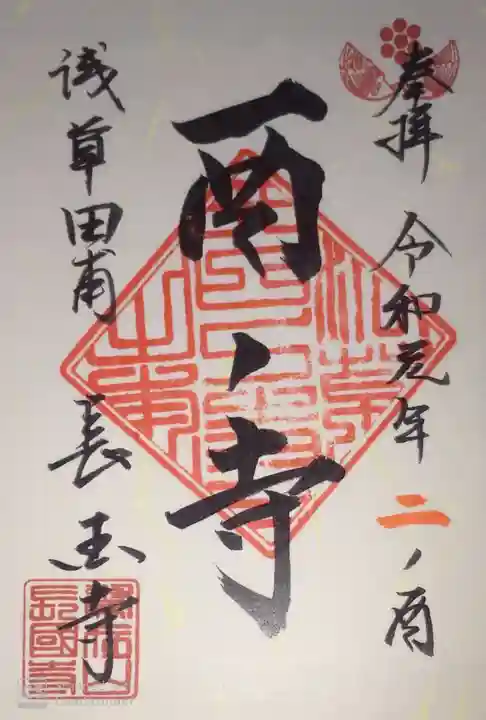 奉拝 令和元年 二ノ酉
酉ノ寺
浅草田甫 長国寺